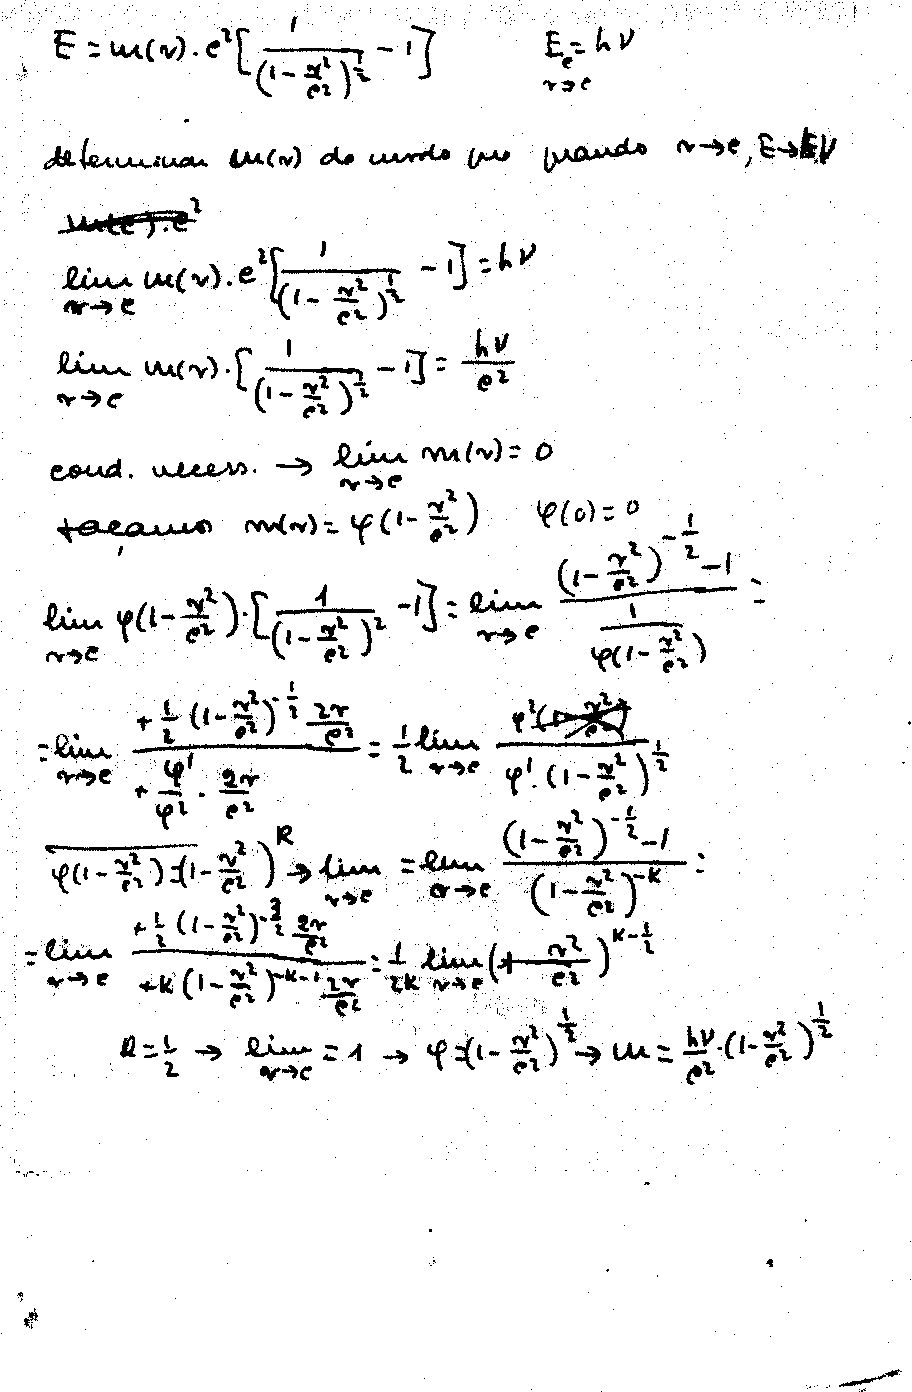 E = m(v).c²[1/(1-v²/c²)^½ - 1]     E_c = hν
v→c
determinar m(v) de modo que quando v→c, E→hν
m(c).c²
lim m(v).c²[1/(1-v²/c²)^½ - 1] = hν
v→c
lim m(v).[1/(1-v²/c²)^½ - 1] = hν/c²
v→c
cond. necess. → lim m(v) = 0
v→c
façamos m(v) = φ(1-v²/c²)   φ(0) = 0
lim φ(1-v²/c²).[1/(1-v²/c²)^2 - 1] = lim ((1-v²/c²)^-½ - 1)/(1/φ(1-v²/c²)) =
v→c   v→c
= lim (+½(1-v²/c²)^-½ 2v/c²)/(+φ'/φ² . 2v/c²) = ½ lim φ²/(φ'.(1-v²/c²)^½)
v→c   v→c
φ(1-v²/c²) = (1-v²/c²)^k → lim = lim ((1-v²/c²)^-½ - 1)/((1-v²/c²)^-k) =
v→c   v→c
= lim (+½(1-v²/c²)^-3/2 2v/c²)/(+k(1-v²/c²)^-k-1 2v/c²) = 1/2k lim (1-v²/c²)^k-½
v→c   v→c
k = ½ → lim = 1 → φ = (1-v²/c²)^½ → m = hν/c².(1-v²/c²)^½
v→c